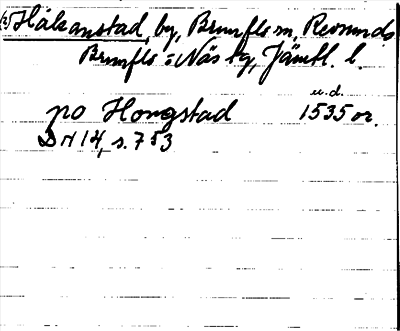 Håkanstad, by, Brunflo sn, Revsunds,
Brunflo o Näs tg, Jämtl. l.
u.d.
po Hongstad 1535 or.
DN 14, s. 753